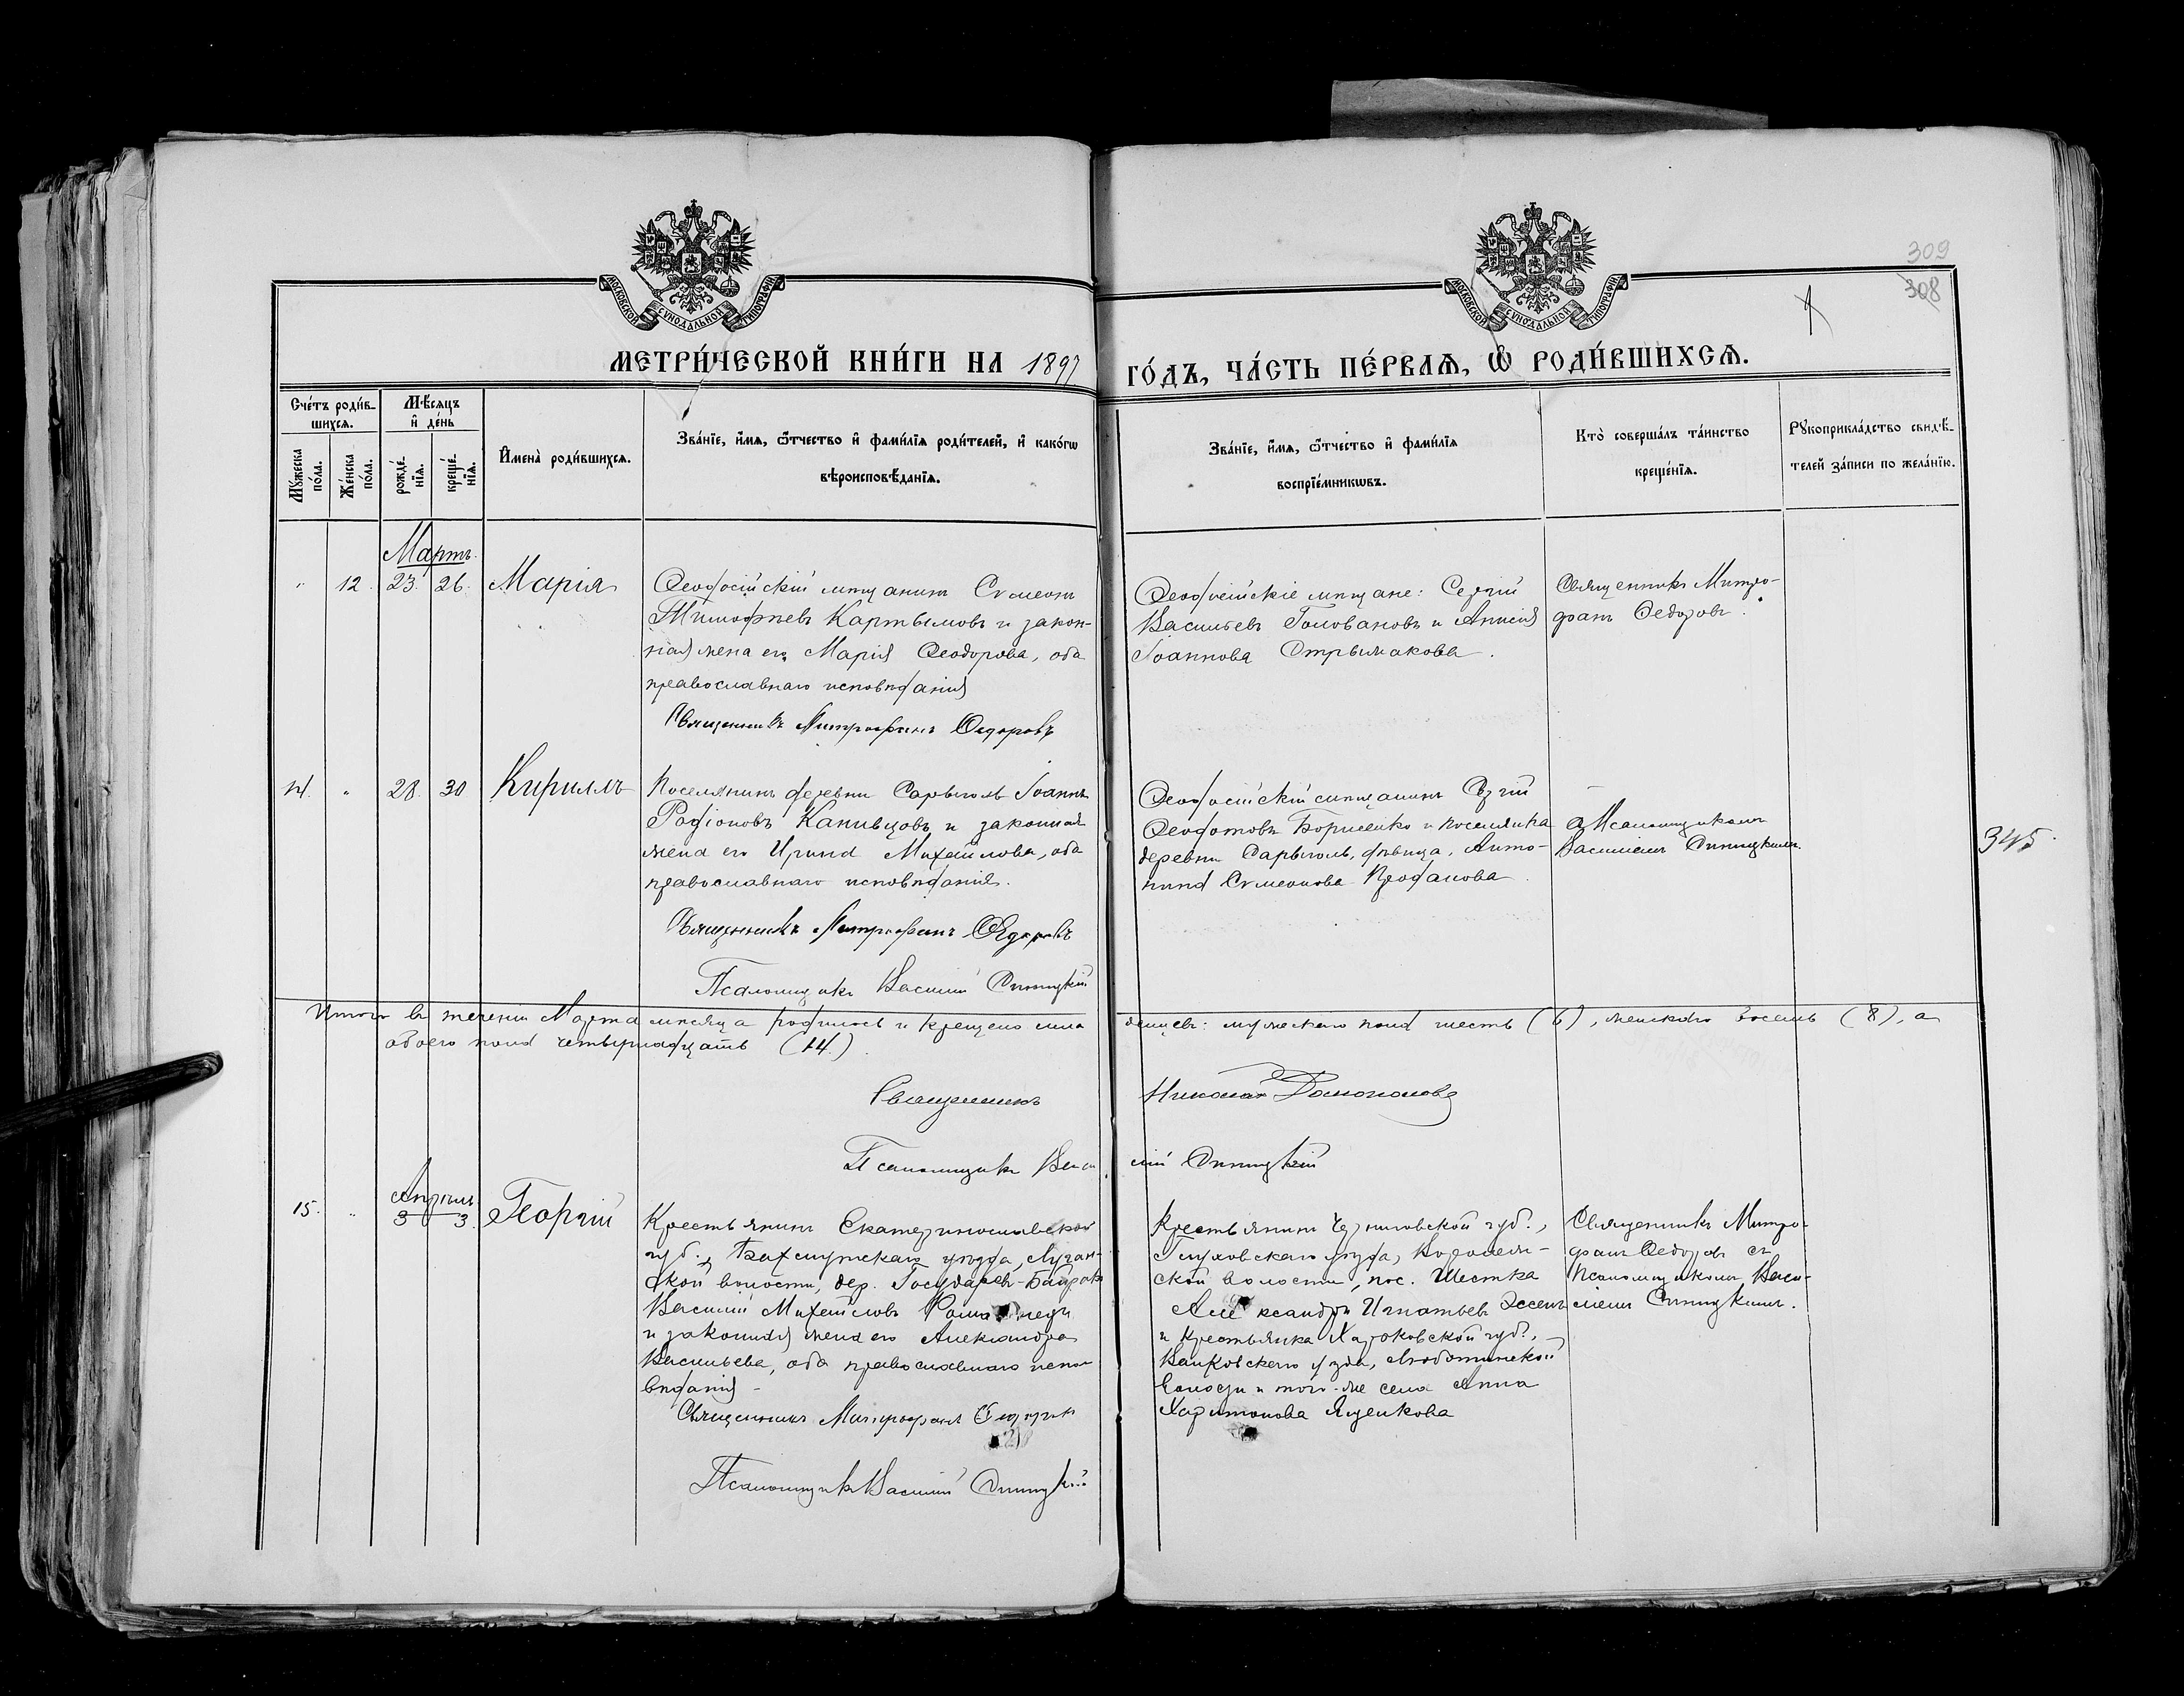 309
308
МОСКОВСКОЙ СѴНОДАЛЬНОЙ ТИПОГРАФІИ
МОСКОВСКОЙ СѴНОДАЛЬНОЙ ТИПОГРАФІИ
МЕТРИ́ЧЕСКОЙ КНИ́ГИ НА 1897 ГО́ДЪ, ЧА́СТЬ ПЕ́РВАѦ, Ѡ҆ РОДИ́ВШИХСѦ.
Сче́тъ роди́в-
шихсѧ.
Мꙋ́жеска по́ла.
Же́нска по́ла.
Мѣ́сѧцъ
и҆ де́нь
рожде́-
нїѧ.
креще́-
нїѧ.
И҆мена̀ роди́вшихсѧ.
Зва́нїе, и҆́мѧ, ѻ҆́тчество и҆ фами́лїѧ роди́телей, и҆ како́гѡ
вѣроисповѣ́данїѧ.
Зва́нїе, и҆́мѧ, ѻ҆́тчество и҆ фами́лїѧ
воспрїе́мникѡвъ.
Кто̀ соверша́лъ та́инство
креще́нїѧ.
Рꙋкоприкла́дство свидѣ́-
телей за́писи по жела́нїю.
Мартъ.
" 12. 23. 26. Марія
Ѳеодосійскій мѣщанинъ Сѵмеонъ
Тимофѣевъ Картымовъ и закон-
ная жена его Марія Ѳеодорова, оба
православнаго исповѣданія
Священникъ Митрофанъ Ѳедоровъ
Ѳеодосійскіе мѣщане: Сергій
Васильевъ Головановъ и Анисія
Іоаннова Стрыжакова.
Священникъ Митро-
фанъ Ѳедоровъ.
" 28. 30 Кириллъ
Поселянинъ деревни Сарыголь Іоаннъ
Родіоновъ Канивцовъ и законная
жена его Ирина Михайлова, оба
православнаго исповѣданія.
Священникъ Митрофанъ Ѳедоровъ
Псаломщикъ Василій Синицкій
Ѳеодосійскій мѣщанинъ Сергій
Ѳеодотовъ Борисенко и поселянка
деревни Сарыголь, дѣвица, Анто-
нина Сѵмеонова Проданова.
съ Псаломщикомъ
Василіемъ Синицкимъ.
345.
Итого въ теченіи Марта мѣсяца родилось и крещено мла
денцевъ: мужескаго пола шесть (6), женскаго восемь (8), а
обоего пола четырнадцать (14).
Священникъ Николай
Псаломщикъ Васи
лій Синицкій
Апрѣль.
15. " 3 3. Георгій
Крестьянинъ Екатеринославской
губ., Бахмутскаго уѣзда, Луган-
ской волости, дер. Государев-Байрака
Василій Михайловъ
и законная жена его Александра
Васильева, оба православнаго испо
вѣданія -
Священникъ Митрофанъ Ѳедоровъ
Псаломщикъ Василій Синицкій
Крестьянинъ Черниговской губ.,
Глуховскаго уѣзда,
ской волости, пос. Шестка
Александръ Игнатьевъ
и крестьянка Харьковской губ.,
Валковскаго уѣзда, Люботинской
волости и того-же села Анна
Харитонова Яценкова
Священникъ Митро-
фанъ Ѳедоровъ съ
Псаломщикомъ Васи-
ліемъ Синицкимъ.